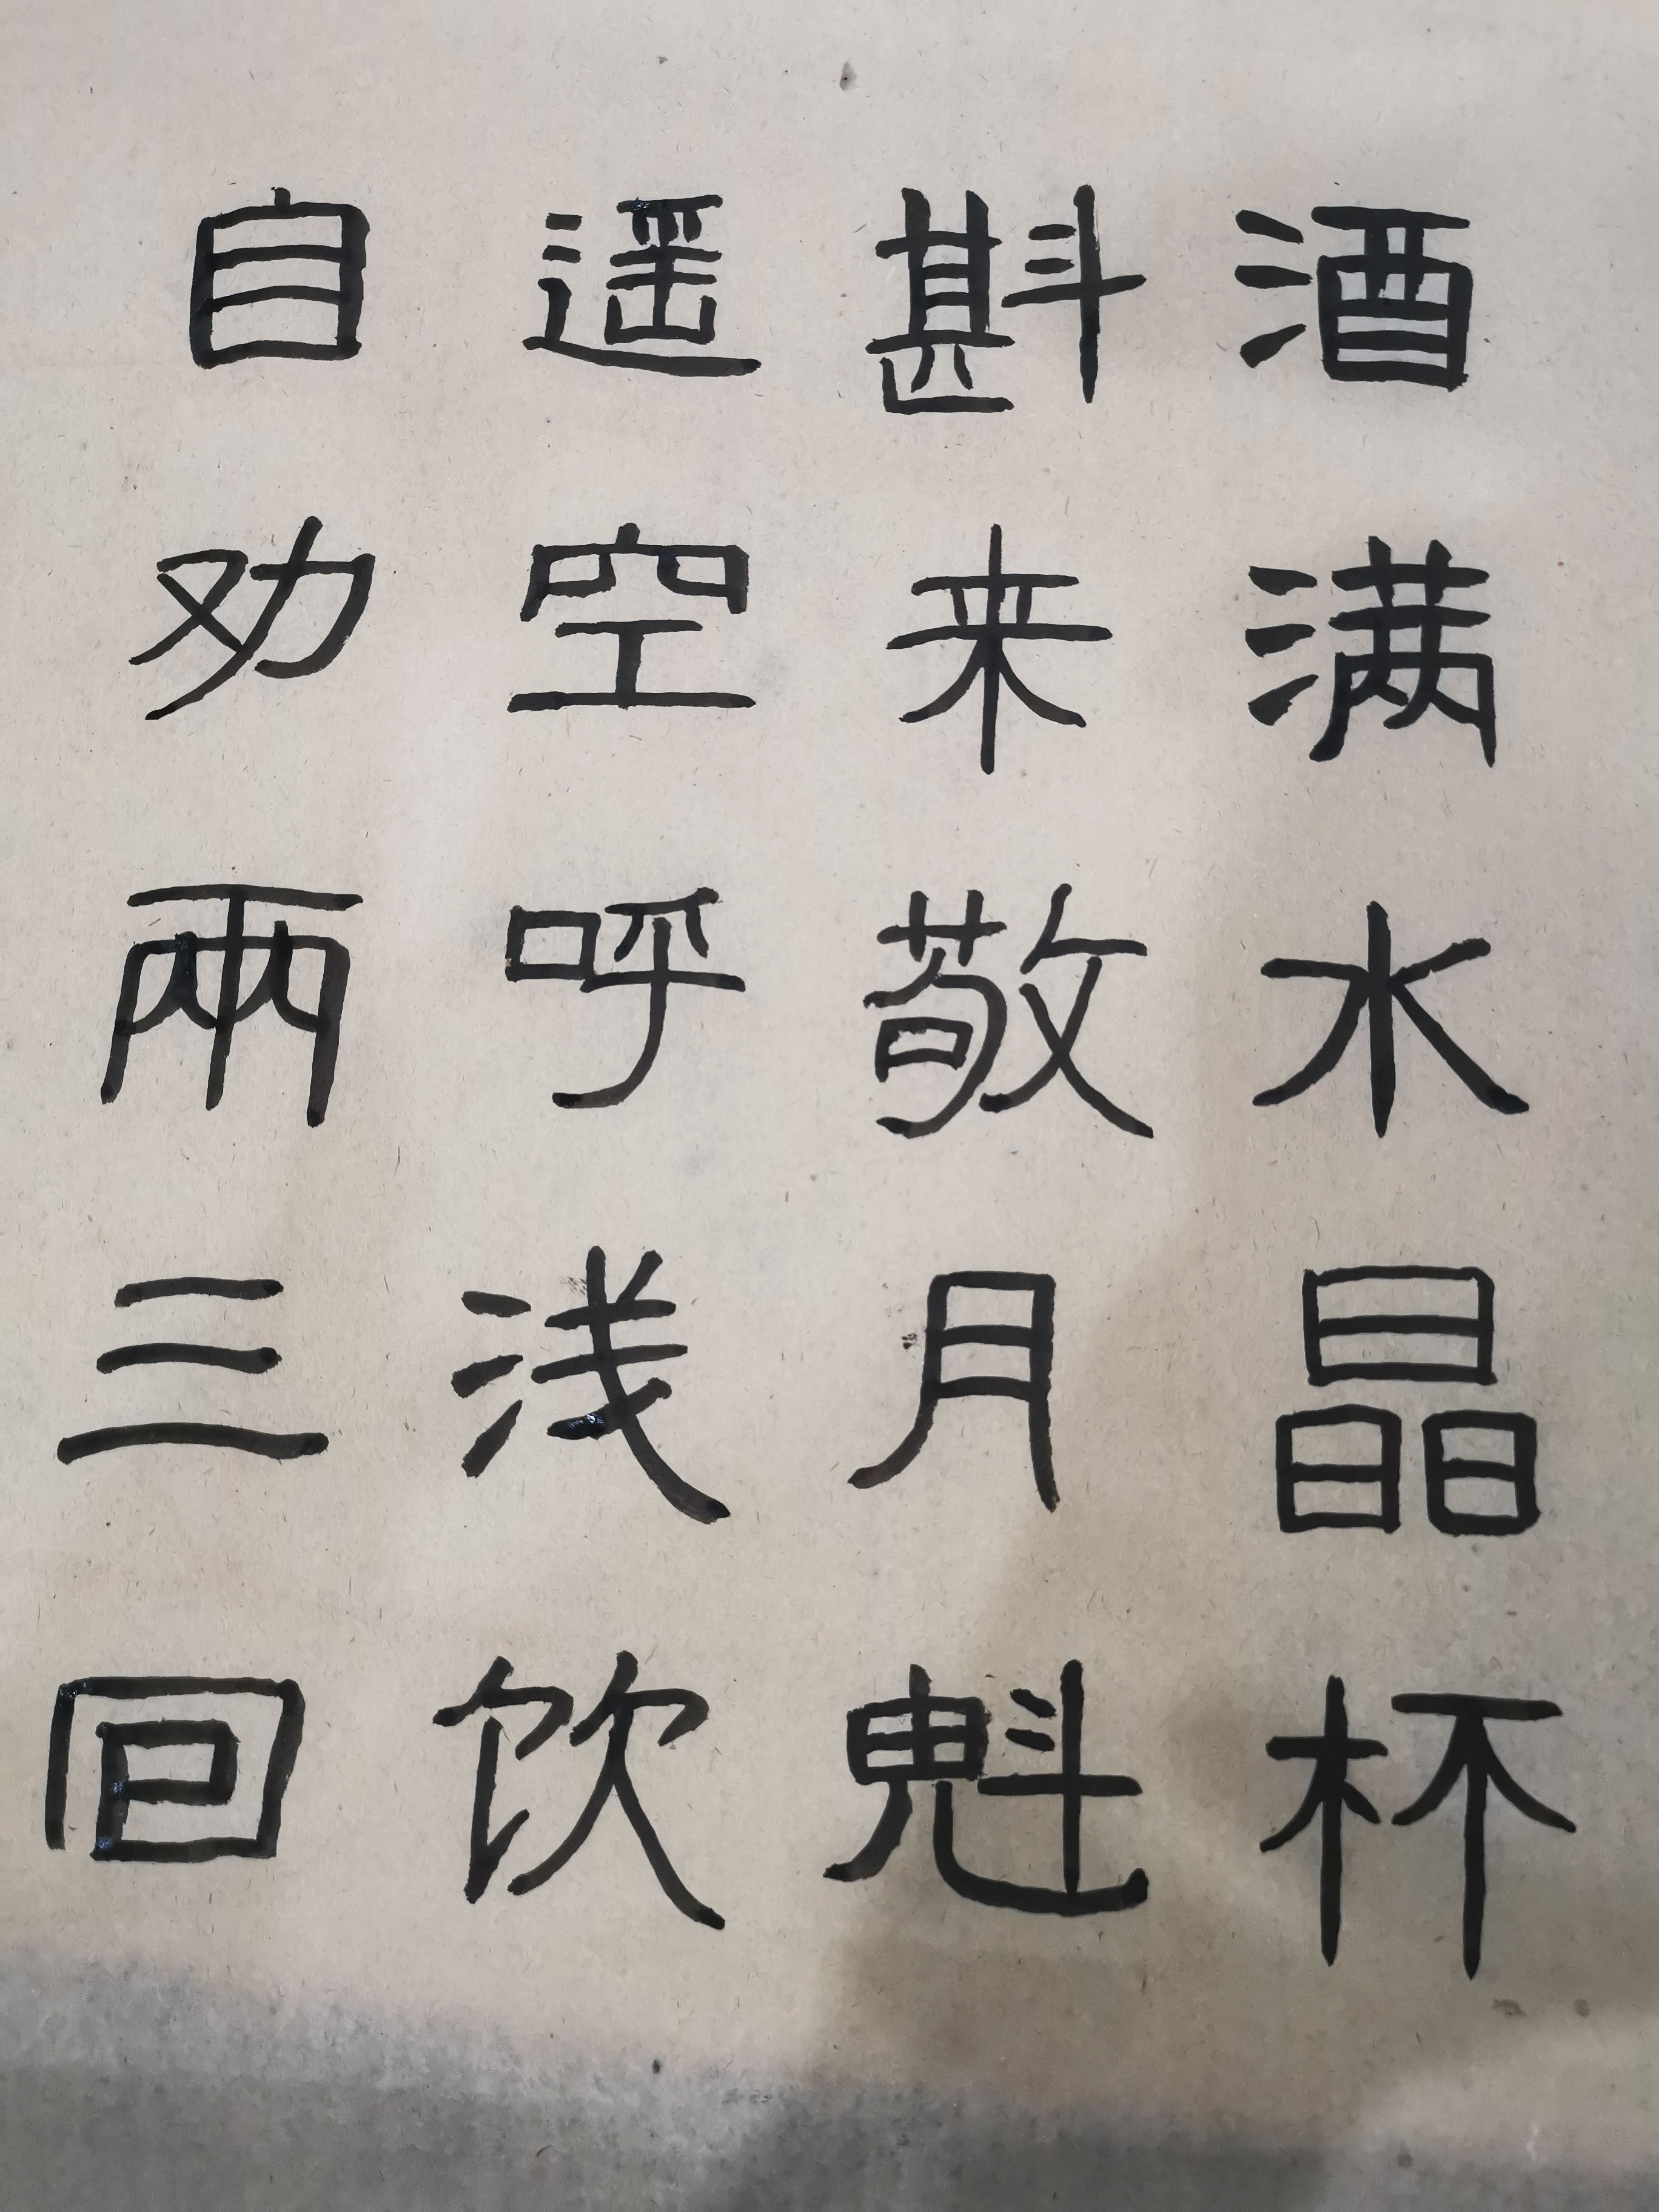 酒满水晶杯
斟来敬月魁
遥空呼浅饮
自劝兩三回